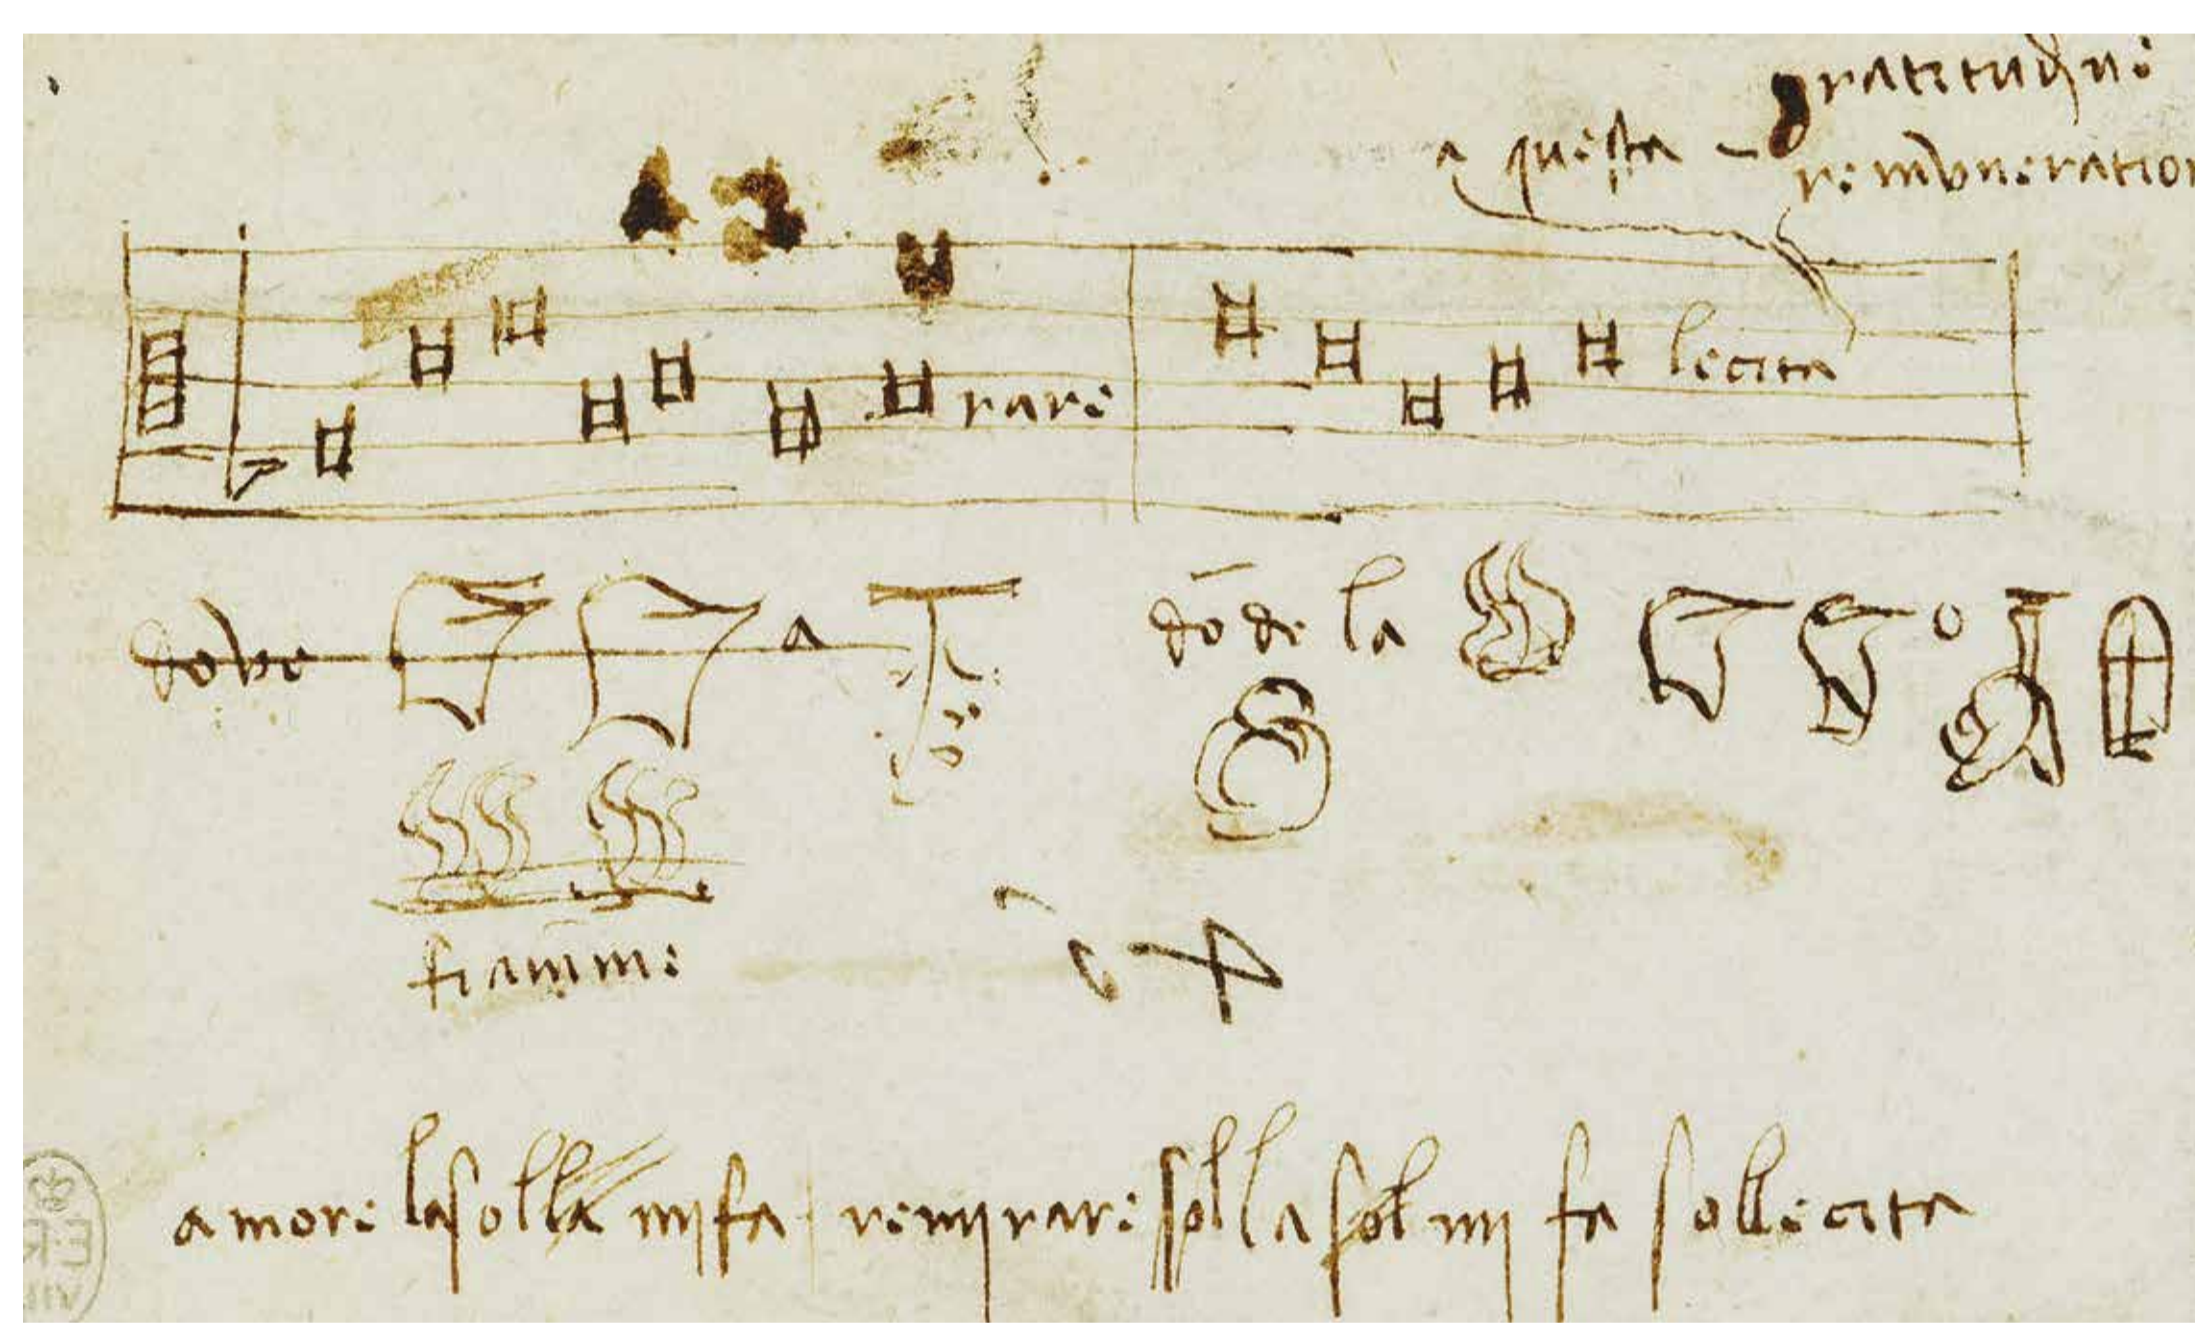 gratitudine
a questa - remuneration
rare
lecita
dove a
dō de la o
fiamme
amore la sol la mi fa remirare sol la sol mi fa sollecita